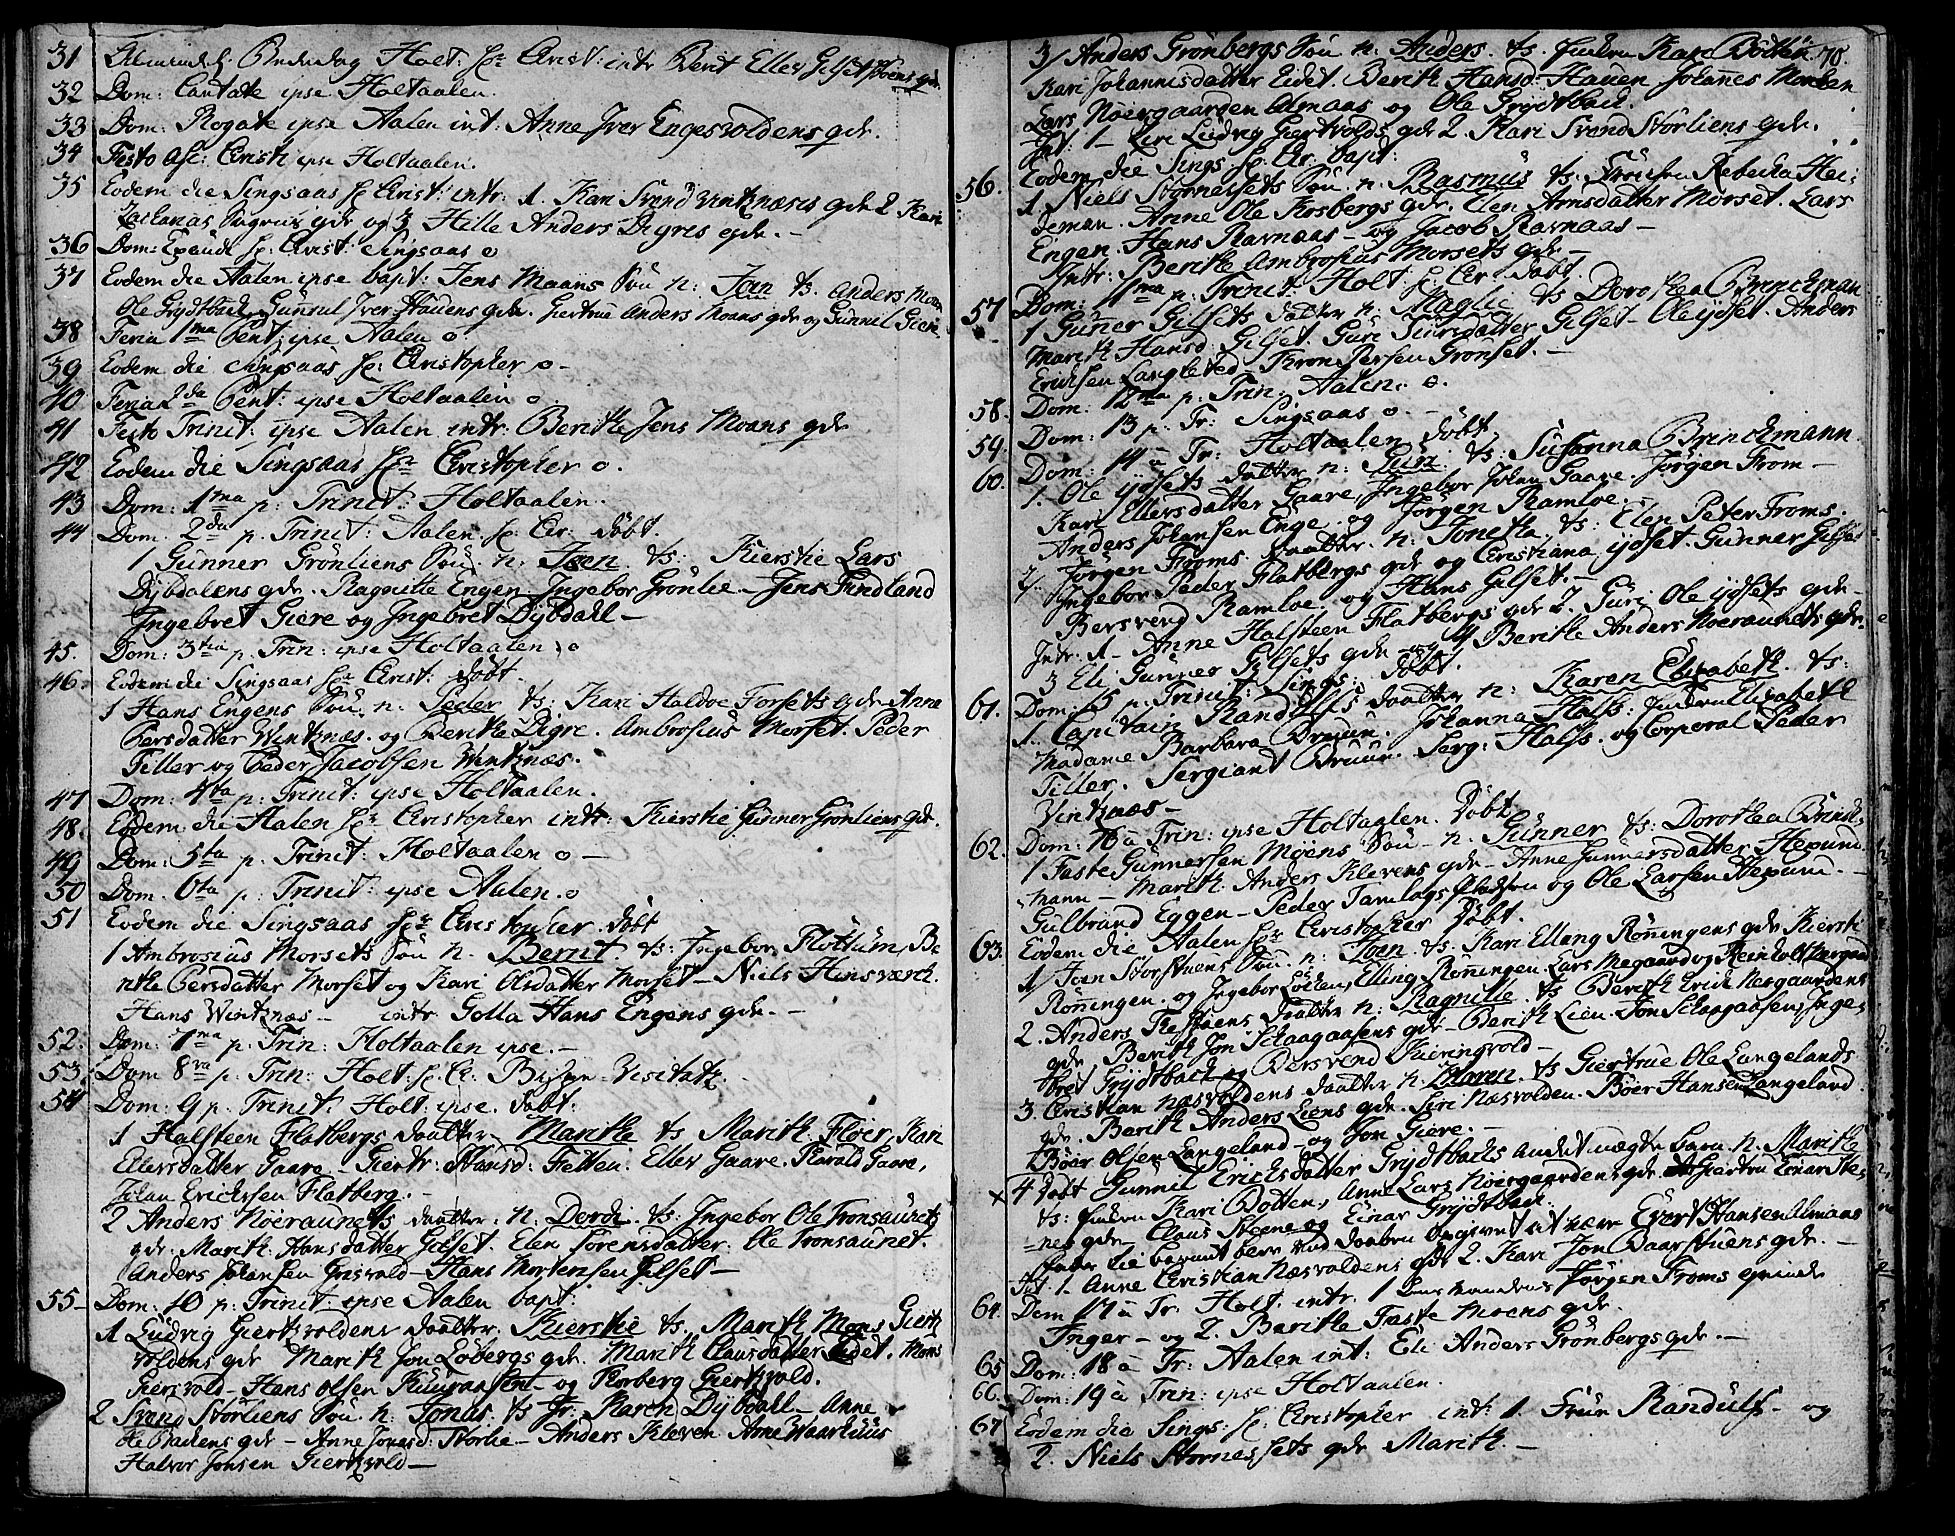 31 Bededag Holt: hr: Christ: intr: Berit Ellev Gilset Moens qde.
32 Dom: Cantate ipse Holtaalen.
33 Dom: Rogate ipse Aalen int: Anne Iver Engesvoldens qde.
34 Festo Asc: Christi ipse Holtaalen.
35 Eodem die Singsaas hr Christ: intr: 1. Kari Svend Wintznæsis qde 2 Kari
Zacharias qde og 3 Hille Anders Digris qde. –
36 Dom: Exaudi hr: Christ: Singsaas o
37 Eodem die Aalen ipse bapt: Jens Moans Søn n: Jon ts. Anders Moan
Ole Grydtback, Gunnil Iver Hauens qde. Giertrue Anders Moans qde og Gunnil Giere
38 Feria 1ma Pent: ipse Aalen o.
39 Eodem die Singsaas hr: Christopher o –
40 Feria 2da Pent: ipse Holtaalen o
41 Festo Trinit: ipse Aalen intr: Berithe Jens Moans qde
42 Eodem die Singsaas hr Christopher o.
43 Dom: 1ma p: Trinit: Holtaalen.
44 Dom: 2da p. Trinit: Aalen hr. Chr. døbt.
1 Gunner Grønliens Søn. n. Joen ts: Kierstie Lars
Dybdalens qde. Ragnille Engen Ingebor Grønlie – Jens Findland
Ingebret Giere og Ingebret Dybdahl –
45. Dom: 3tia p. Trin: ipse Holtaalen o
46. Eodem die Singsaas hr Christ: døbt.
1 Hans Engens Søn n: Peder ts: Kari Haldoe Forsets qde Anne
Persdatter Wintznæs. og Berithe Digre. Ambrosius Morset. Peder
Tiller og Peder Jacobsen Wintznæs.
47 Dom: 4ta p: Trinit: ipse Holtaalen.
48. Eodem die Aalen hr Christopher intr: Kierstie Gunner Grønliens qde.
49 Dom: 5ta p. Trinit: Holtaalen o –
50 Dom. 6ta p: Trinit: ipse Aalen. o
51 Eodem die Singsaas hr Christopher. døbt
1 Ambrosius Morsets Søn n. Bernt. ts: Ingebor Flottum, Be
rithe Persdatter Morset og Kari Olsdatter Morset – Niels Hinsværck.
Hans Wintznæs – intr Golla Hans Engens qde. –
52. Dom: 7ma p. Trin: Holtaalen ipse. –
53. Dom 8va p. Trin: Holt: hr. Chr. Bisp Visitatz
54 Dom: 9 p. Trinit: Holt: ipse. døbt:
1 Halsteen Flatbergs daatter Marithe ts Marith Fløer, Kari
Ellersdatter Gaare – Giertr: Hansd: Fetten. Ellev Gaare. Harald Gaare,
Johan Erichsen Flatberg. –
2 Anders Nøeraunets daatter: n: Dordi. ts: Ingebor Ole Tronsaunets
qde. Marith Hansdatter Gilset. Elen Sørensdatter. Ole Tronsaunet.
Anders Johansen Grisvold – Hans Mortensen Gilset –
55 – Dom: 10 p: Trinit: ipse Aalen bapt:
1 Ludvig Giertzvoldens daatter Kierstie ts. Marith Mons Giertz
voldens qde Marith Jon Løbergs qde. Marith Clausdatter Eidet. Mons
Giertzvold – Hans Olsen Kuuraasen – og Thorberg Giertzvold.
2 Svend Størliens Søn n: Jonas. ts Jfr: Karen Dybdahl – Anne
Ole Backens qde – Anne Jonsd: Storlie – Anders Kleven Arne Haarhuus
Halvor Jonsen Giertzvold –
70.
3/ Anders Grønbergs Søn n: Anders. ts. Jfr Kari Botten
Kari Johannisdatter Eidet. Berith Hansd: Hauen Johannes Morten
Lars Nøergaarden Almaas og Ole Grydtback.
Int: 1 – Ludvig Giertvolds qde 2. Kari Svend Størliens qde.
56. Eodem die Sings: hr Chr. bapt:
1 Niels Størnessets Søn n. Rasmus ts: Rebecka Hei
deman. Anne Ole Kosbergs qde. Elen Arnsdatter Morset. Lars
Engen. Hans Ravnaas – og Jacob Ravnaas –
Intr: Berithe Ambrosius Morsets qde –
57 Dom: 11ma p. Trinit: Holt hr. Chr. døbt.
1 Guner Gilsets daatter n: Magli ts Dorothea Brinckman
Marith Hansd: Gilset. Guri Siursdatter Gilset – Ole ydset. Anders
Erichsen Langleted – Thron Persen Grønset. –
58. Dom: 12ma p. Trin: Aalen. o.
59. Dom: 13 p. Tr: Singsaas o. –
60. Dom: 14 à Tr: Holtaalen døbt
1. Ole ydsets daatter n: Guri. ts: Susanna Brinckmann
Kari Ellersdatter Gaare, Ingebor Johan Gaare. Jørgen From –
Anders Johansen Enge. og Jørgen Ramloe. –
2/. Jørgen Froms daatter. n: Jonetta ts: Elen Peter Froms.
Ingebor Peder Flatbergs qde og Christiana ydset. Gunner Gilset
Bersvend Ramloe, og Hans Gilset. –
Intr: 1 – Anne Halsteen Flatbergs qde 2. Guri Ole ydsets qde –
3 Eli Gunner Gilsets qde og 4 Berithe Anders Nøeraunets qde.
61. Dom: 15 p. Trinit: Sings: døbt.
1. Capitain Randulfs daatter n: Karen Elisabeth ts:
Madame Barbara Bruun. Johanna Hals: Elisabeth
Tiller. Sergiant Bruun. Serg: Hals. og Corporal Peder
Wintznæs –
62. Dom: 16 à Trin: ipse Holtaalen. Døbt
1 Faste Gunnersen Møens Søn – n. Gunner ts: Dorothea Brinck
mann – Marith Anders Klevens qde – Anne Gunnersdatter Hexum.
Gulbrand Eggen – Peder Tamlagspladsen og Ole Larsen Hexum. –
63. Eodem die Aalen hr Christopher Døbt.
1/ Joen Storstuens Søn. n: Joen ts: Kari Elling Rønningens qde Kiersti
Rønningen. og Ingebor Løcken, Elling Rønningen. Lars Nøegaard og Reinholt Nergaard
2. Anders Restøens daatter n: Ragnille. ts Berith Erich Nergaardens
qde. Berith Jon Schaagaasens qde – Berith Lien. Jon Schaagaasen, Inge
bret Grydtback og Bersvend Kieringvold –
3. Christian Næsvoldens daatter n. Maren. ts Giertrue Ole Langelands
qde. Berith Anders Liens qde. Siri Næsvolden. Bøer Hansen Langeland.
Bøer Olsen Langeland – og Jon Giere. –
× 4 døbt Gunnil Erichsdatter Grydtbacks andet uægte barn n. Marithe
ts: Jfr Kari Botten, Anne Lars Nøergaardens qde. Giertru Einar Ste
nes qde – Claus Steene og Einar Grydtback.
fader til barnet blev ved daaben angivet at være Evert Hansen Almaas
Int: 1. Anne Christian Næsvoldens qde 2. Kari Jon Baarstuens qde. –
64. Dom 17 à Tr: Holt. intr. 1 Jørgen Froms qvinde
Inger – og 2. Berithe Faste Moens qde.
65 Dom: 18 à Tr: Aalen int: Eli Anders Grønbergs qde. –
66. Dom: 19 à Trin: ipse Holtaalen.
67 Eodem die Sings: hr: Christopher int: 1. Frue Randulf – og
2. Niels Størnessets qde Marith. –